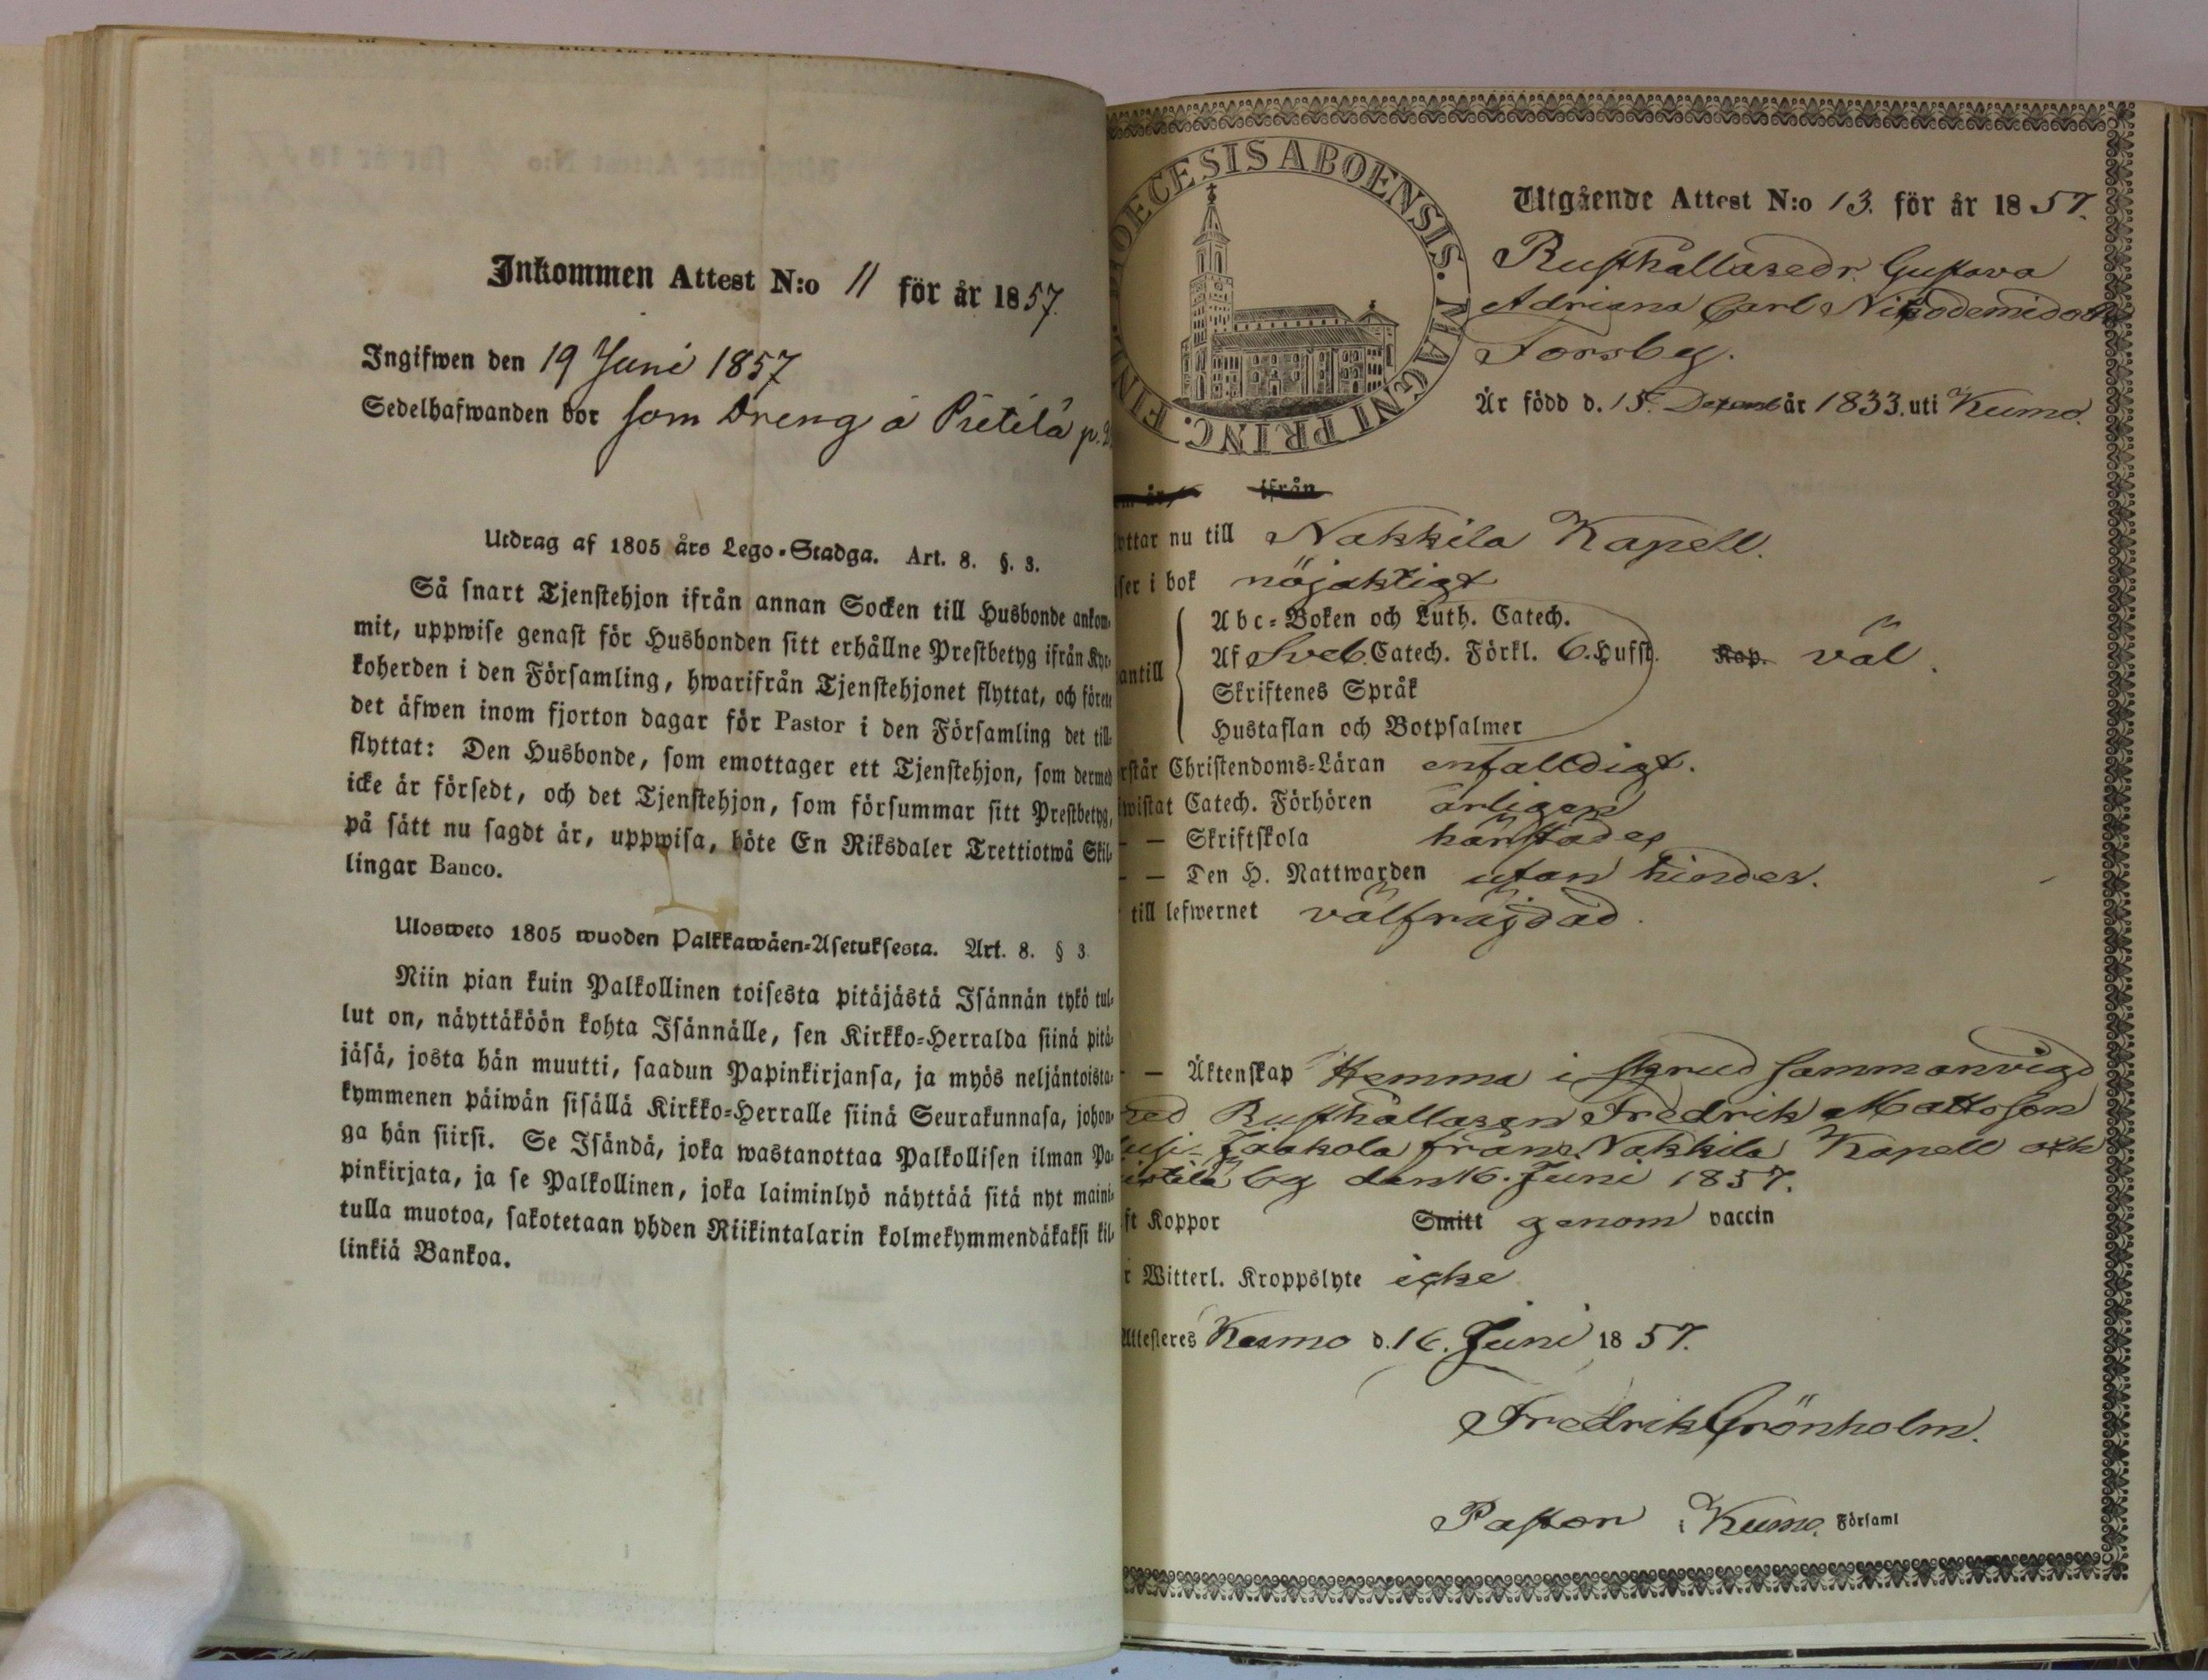 Inkommen Attest N:o 11 för år 1857.
Ingifwen den 19 Juni 1857
Sedelhafwanden bor som Dreng å Pietilä p.
Utdrag af 1805 års Lego-Stadga. Art. 8. §. 3.
Så snart Tjenstehjon ifrån annan Socken till Husbonde ankom-
mit, uppwise genast för Husbonden sitt erhållne Prestbetyg ifrån Kyr-
koherden i den Församling, hwarifrån Tjenstehjonet flyttat, och förete
det äfwen inom fjorton dagar för Pastor i den Församling det till-
flyttat: Den Husbonde, som emottager ett Tjenstehjon, som dermed
icke är försedt, och det Tjenstehjon, som försummar sitt Prestbetyg,
på sätt nu sagdt är, uppwisa, böte En Riksdaler Trettiotwå Skil-
lingar Banco.
Ulosweto 1805 wuoden Palkkawäen-Asetuksesta. Art. 8. § 3.
Niin pian kuin Palkollinen toisesta pitäjästä Isännän tykö tul-
lut on, näyttäköön kohta Isännälle, sen Kirkko-Herralda siinä pitä-
jäsä, josta hän muutti, saadun Papinkirjansa, ja myös neljäntoista-
kymmenen päiwän sisällä Kirkko-Herralle siinä Seurakunnasa, johon-
ga hän siirsi. Se Isändä, joka wastanottaa Palkollisen ilman Pa-
pinkirjata, ja se Palkollinen, joka laiminlyö näyttää sitä nyt maini-
tulla muotoa, sakotetaan yhden Riikintalarin kolmekymmendäkaksi kil-
linkiä Bankoa.
DIOECESIS ABOENSIS. MAGNI PRINC. FIN
Utgående Attest N:o 13. för år 1857.
Rusthållaredr. Gustava
Adriana Carl Nikodemidotter
Forsby.
Är född d. 15. Decemb år 1833. uti Kumo.
ifrån
ottar nu till Nakkila Kapell.
ser i bok nöjaktigt
Abc-Boken och Luth. Catech.
Af Sveb. Catech. Förkl. 6. Hufst. Rap. väl.
antill
Skriftenes Språk
Hustaflan och Botpsalmer
rstår Christendoms-Läran enfalldigt.
wistat Catech. Förhören årligen
— Skriftskola härstädes
— Den H. Nattwarden utan hinder.
till lefwernet välfräjdad.
— Äktenskap Hemma i stgrud sammanvigd
med Rusthållaren Fredrik Mattsson
Jaakola från Nakkila Kapell och
by den 16. Juni 1857.
ft Koppor Smitt genom vaccin
r Witterl. Kroppslyte icke
Attesteres Kumo d. 16. Juni 1857.
Fredrik Grönholm.
Pastor i Kumo. Församl